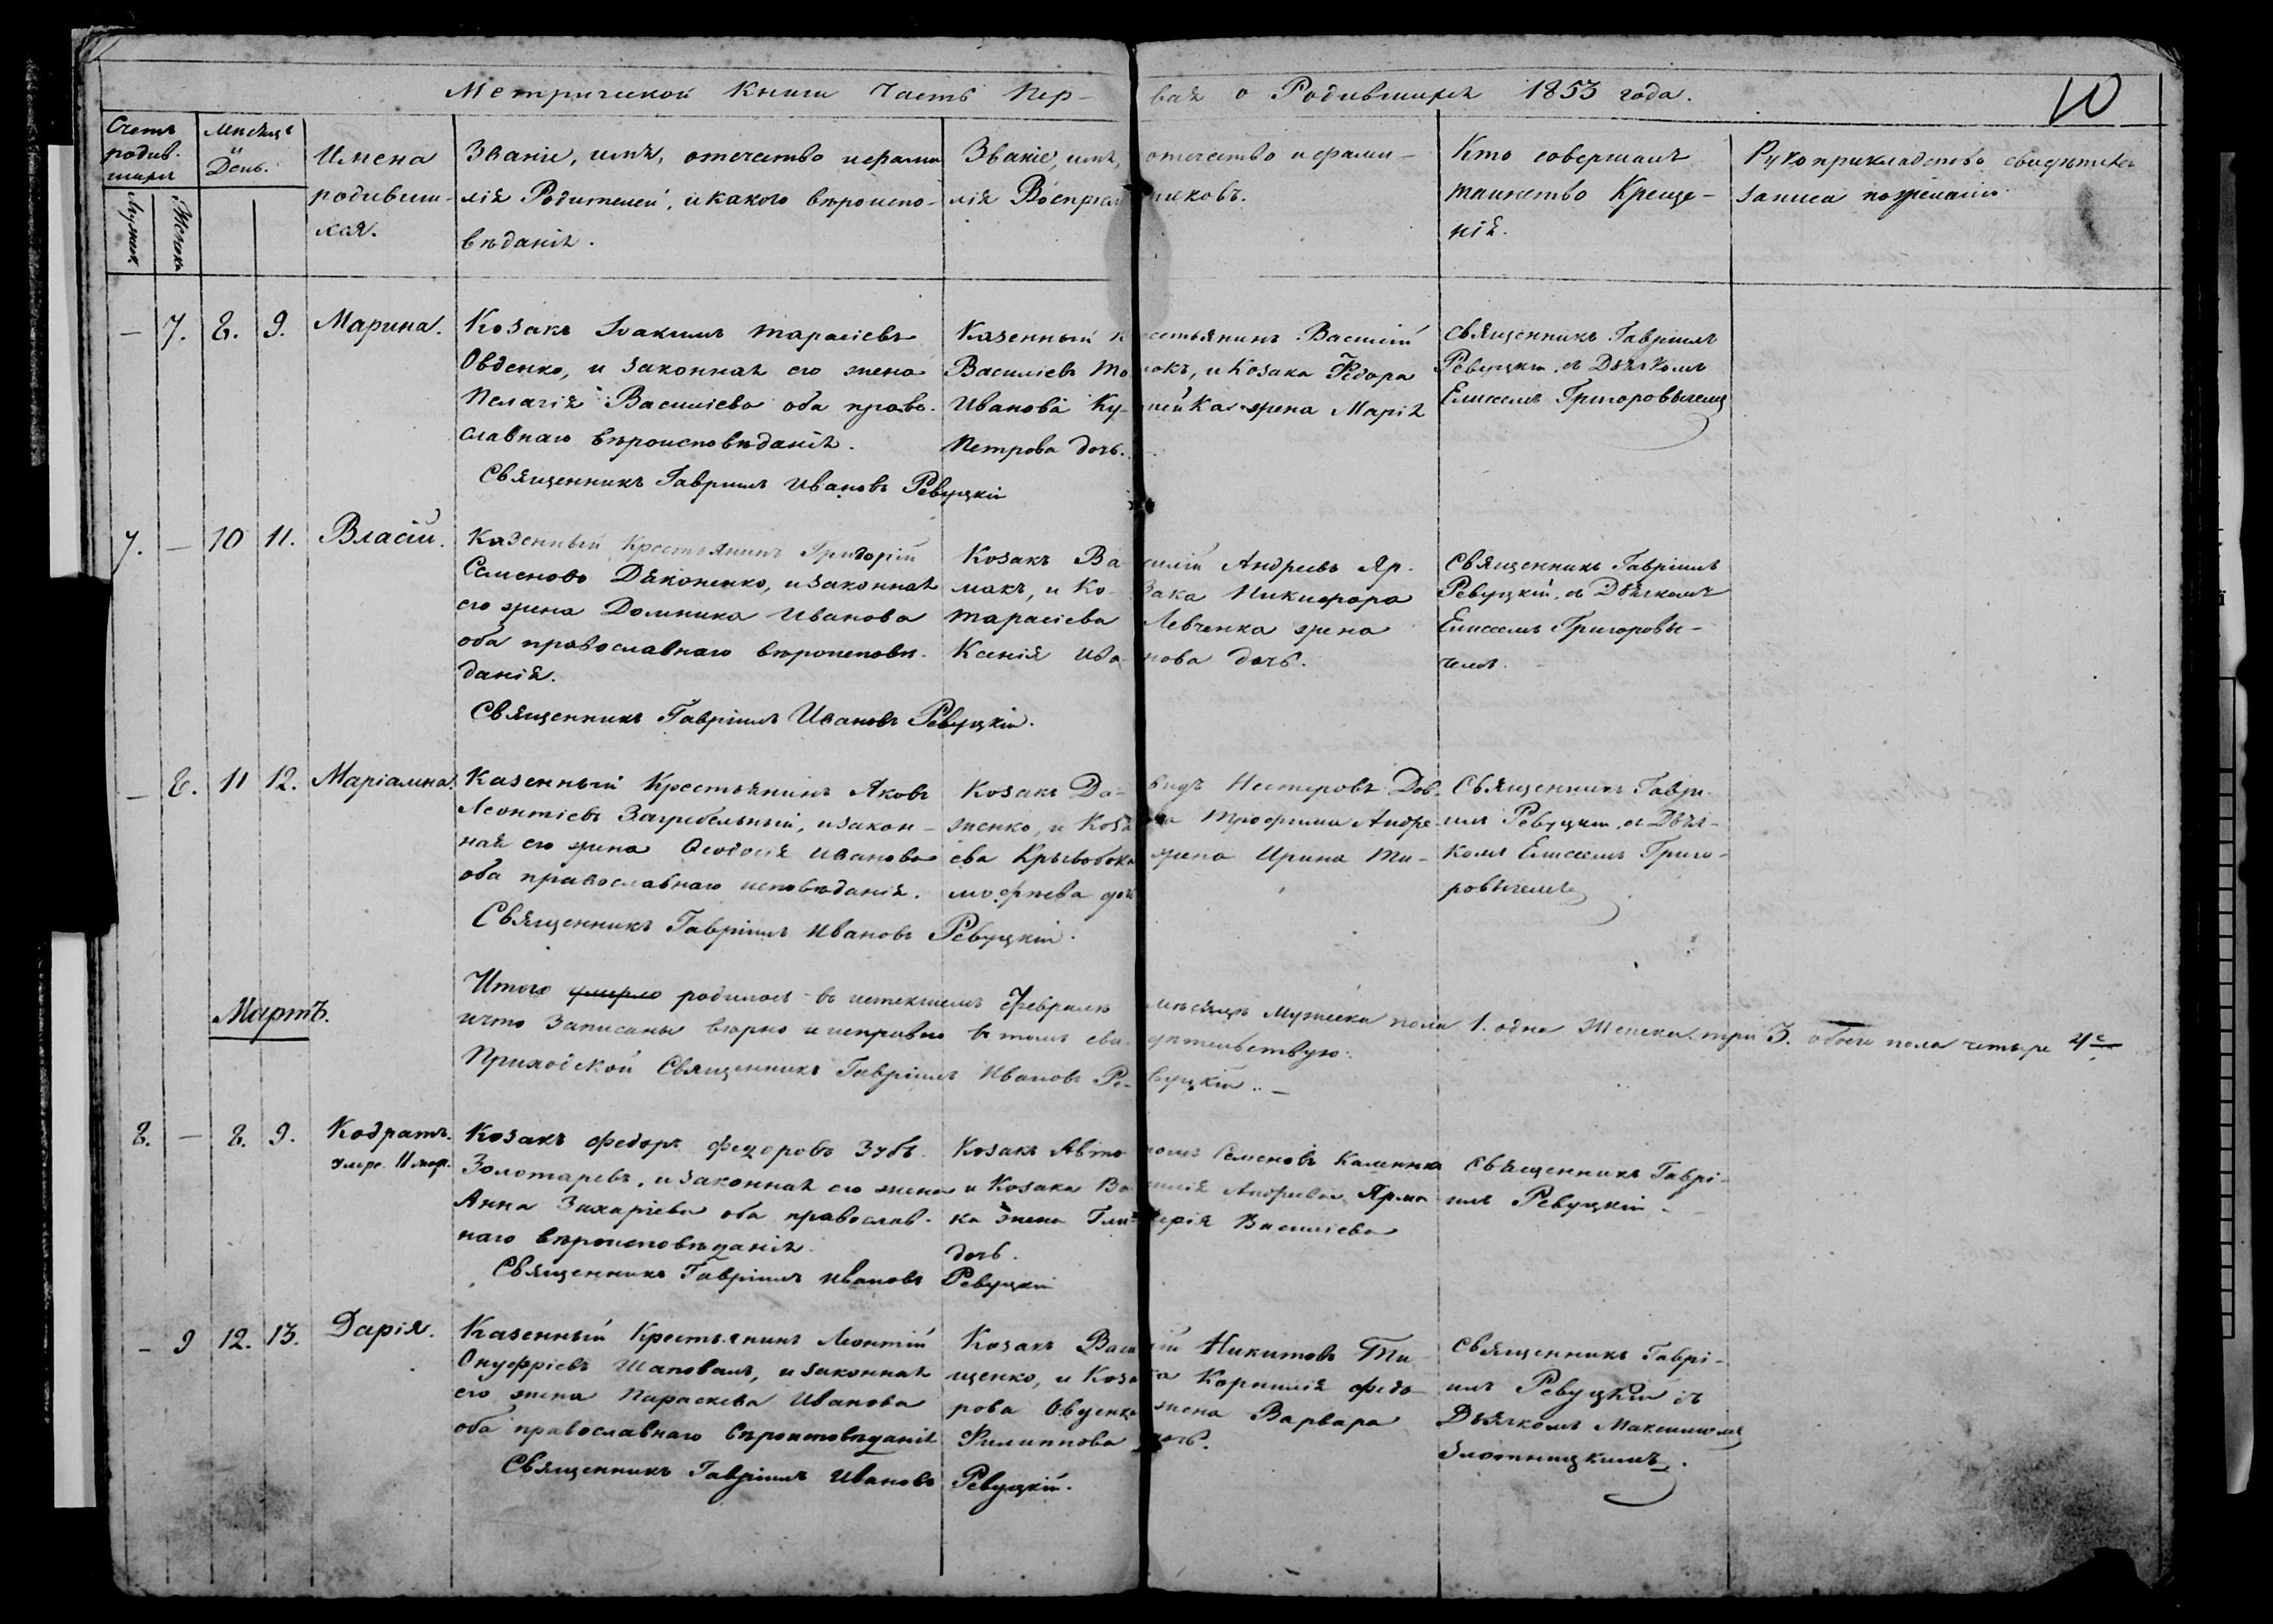 Метрической Книги Часть Пер- вая о Родившихся 1853 года.
10
Счетъ родив- шихся
Мужеск. Женск.
Мѣсяцъ и День.
Имена родивши- хся.
Званіе, имя, отечество и фами
лія Родителей, и какого вѣроиспо-
вѣданія.
Званіе, имя, отечество и фами-
лія Воспріемниковъ.
Кто совершалъ
таинство Креще-
нія.
Рукоприкладство свидѣтелей
записа по желанію
— 7. 8. 9. Марина.
Козакъ Іоакимъ Тарасіевъ
Овденко, и законная его жена
Пелагія Василіева оба право-
славнаго вѣроисповѣданія.
Священникъ Гавріилъ Ивановъ Ревуцкій
Казенный крестьянинъ Василій
Василіевъ и Козака Федора
Иванова жена Марія
Петрова дочь.
Священникъ Гавріилъ
Ревуцкій, съ Дьячкомъ
Елисеемъ Григоровичемъ
7. — 10 11. Власій.
Казенный Крестьянинъ Григорій
Семеновъ Дяконенко, и законная
его жена Домника Иванова
оба православнаго вѣроисповѣ-
данія.
Священникъ Гавріилъ Ивановъ Ревуцкій.
Козакъ Василій Андреевъ Яр-
макъ, и Козака Никифора
Тарасіева Левченка жена
Ксенія Иванова дочь.
Священникъ Гавріилъ
Ревуцкій, съ Дьячкомъ
Елисеемъ Григорови-
чемъ.
— 8. 11 12. Маріамна.
Казенный Крестьянинъ Яковъ
Леонтіевъ Загребельный, и закон-
ная его жена Феодосія Иванова
оба православнаго исповѣданія.
Священникъ Гавріилъ Ивановъ Ревуцкій.
Козакъ Давидъ Нестеровъ Дов-
женко, и Козака Трофима Андре-
ева Кривобока жена Ирина Ти-
мофѣева дочь
Священникъ Гаврі-
илъ Ревуцкій, съ Дьяч-
комъ Елисеемъ Григо-
ровичемъ
Мартъ.
Итого умерло родилось въ истекшемъ Февралѣ мѣсяцѣ Мужеска пола 1. одна Женска три 3. обоего пола четыре 4е
и что записаны вѣрно и исправно въ томъ свидѣтельствую:
Приходской Священникъ Гавріилъ Ивановъ Ревуцкій. —
8. — 8. 9. Кодратъ.
умре 11 мар.
Козакъ Федоръ Федоровъ Зубъ
Золотаревъ, и законная его жена
Анна Захаріева оба православ-
наго вѣроисповѣданія.
Священникъ Гавріилъ Ивановъ Ревуцкій
Козакъ Автономъ Семеновъ
и Козака Василія Андреева Ярма
ка жена Гликерія Василіева
дочь.
Священникъ Гаврі-
илъ Ревуцкій. —
— 9 12. 13. Дарія.
Казенный Крестьянинъ Леонтій
Онуфріевъ Шаповалъ, и законная
его жена Параскева Иванова
оба православнаго вѣроисповѣданія
Священникъ Гавріилъ Ивановъ Ревуцкій.
Козакъ Василій Никитовъ Ти-
щенко, и Козака Корнилія Федо-
рова Овденка жена Варвара
Филиппова дочь.
Священникъ Гаврі-
илъ Ревуцкій съ
Дьячкомъ Максимомъ
Злотницкимъ.